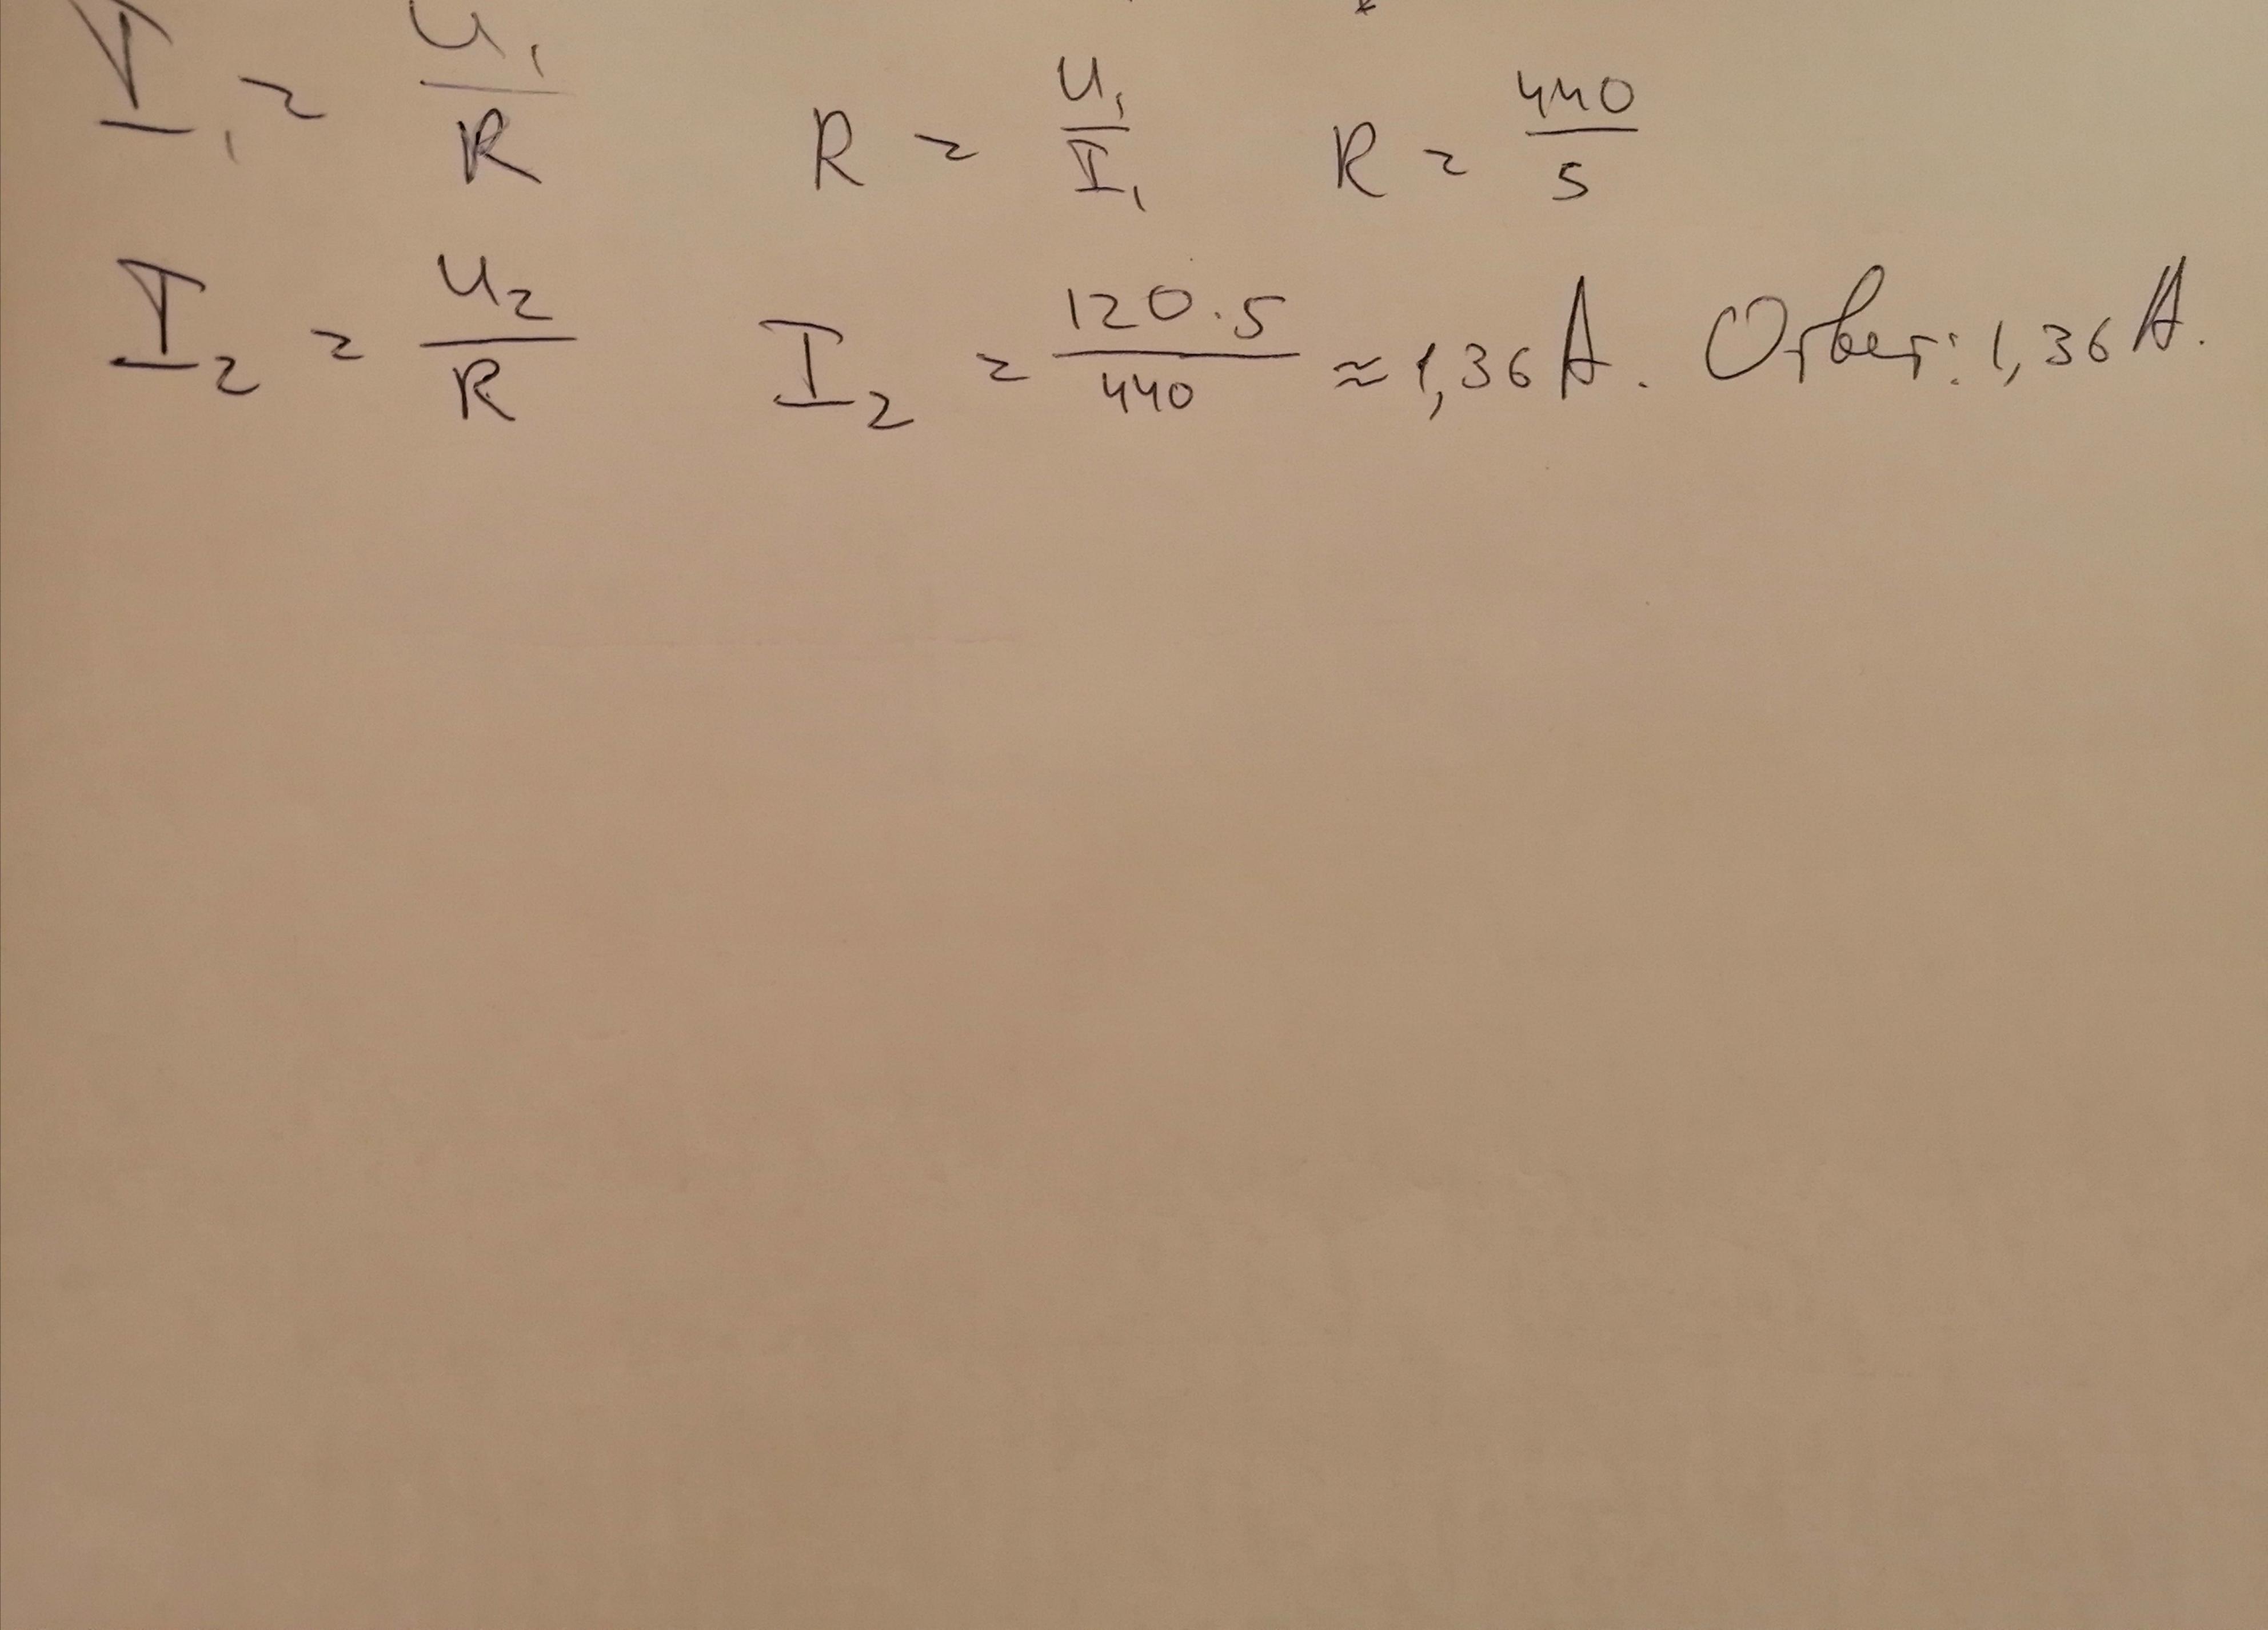 I₁ = U₁/R R = U₁/I₁ R = 440/5
I₂ = U₂/R I₂ = 120·5/440 ≈ 1,36 A. Ответ: 1,36 A.